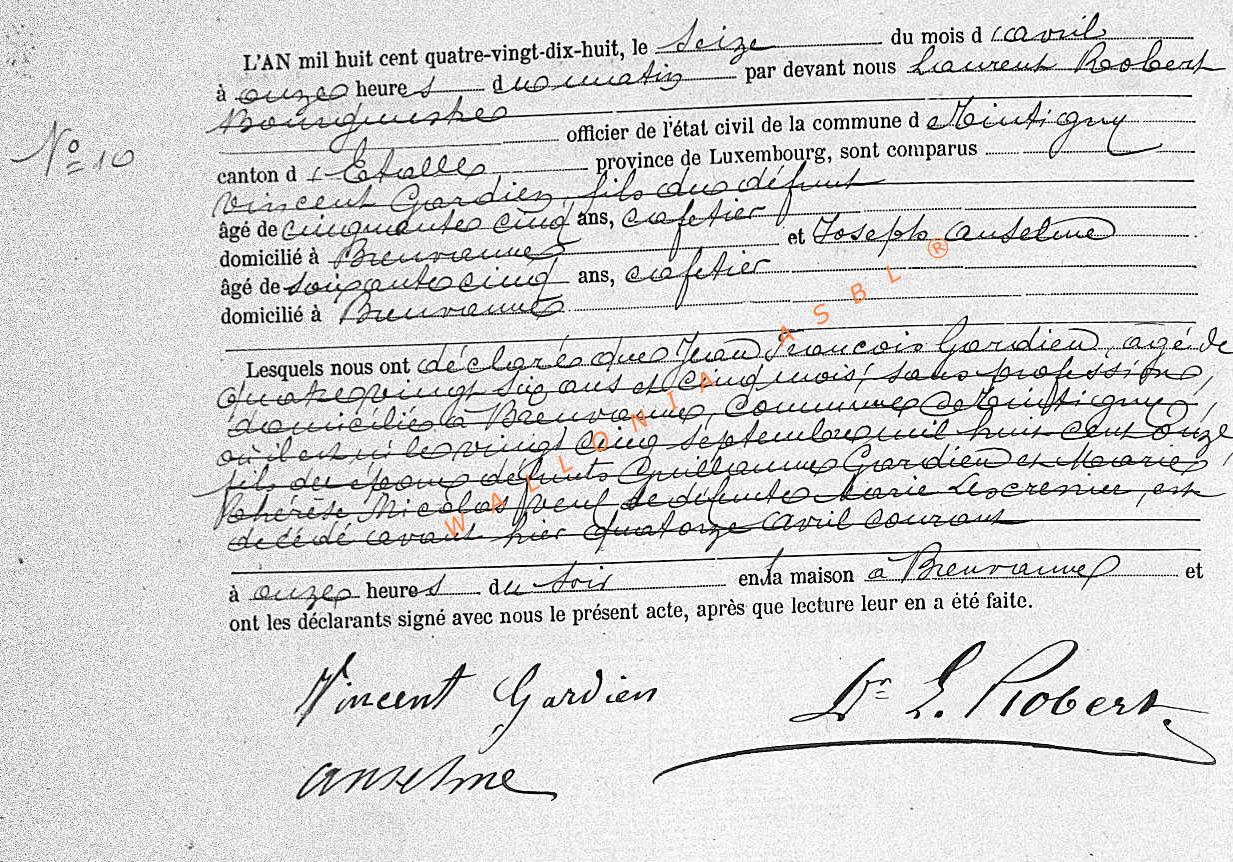 L'AN mil huit cent quatre-vingt-dix-huit, le seize du mois d'avril
à onze heures du matin par devant nous Laurent Robert
Bourgmestre officier de l'état civil de la commune de Tintigny
N° 10
canton d'Etalle, province de Luxembourg, sont comparus
Vincent Gardien, fils du défunt
âgé de cinquante cinq ans, cafetier
domicilié à Breuvanne et Joseph Anselme
âgé de soixante cinq ans, cafetier
domicilié à Breuvanne
Lesquels nous ont déclaré que Jean François Gardien, agé de
quatre vingt six ans et cinq mois, sans profession,
domicilié à Breuvanne, commune de Tintigny,
où il est né le vingt cinq septembre mil huit cent onze
fils des époux défunts Guillaume Gardien et Marie
Thérèse Nicolas, veuf de défunte Marie Lescrenier, est
décédé avant hier quatorze avril courant
à onze heures du soir en la maison à Breuvanne et
ont les déclarants signé avec nous le présent acte, après que lecture leur en a été faite.
Vincent Gardien
Dr L. Robert.
Anselme
WALLONIA ASBL ®